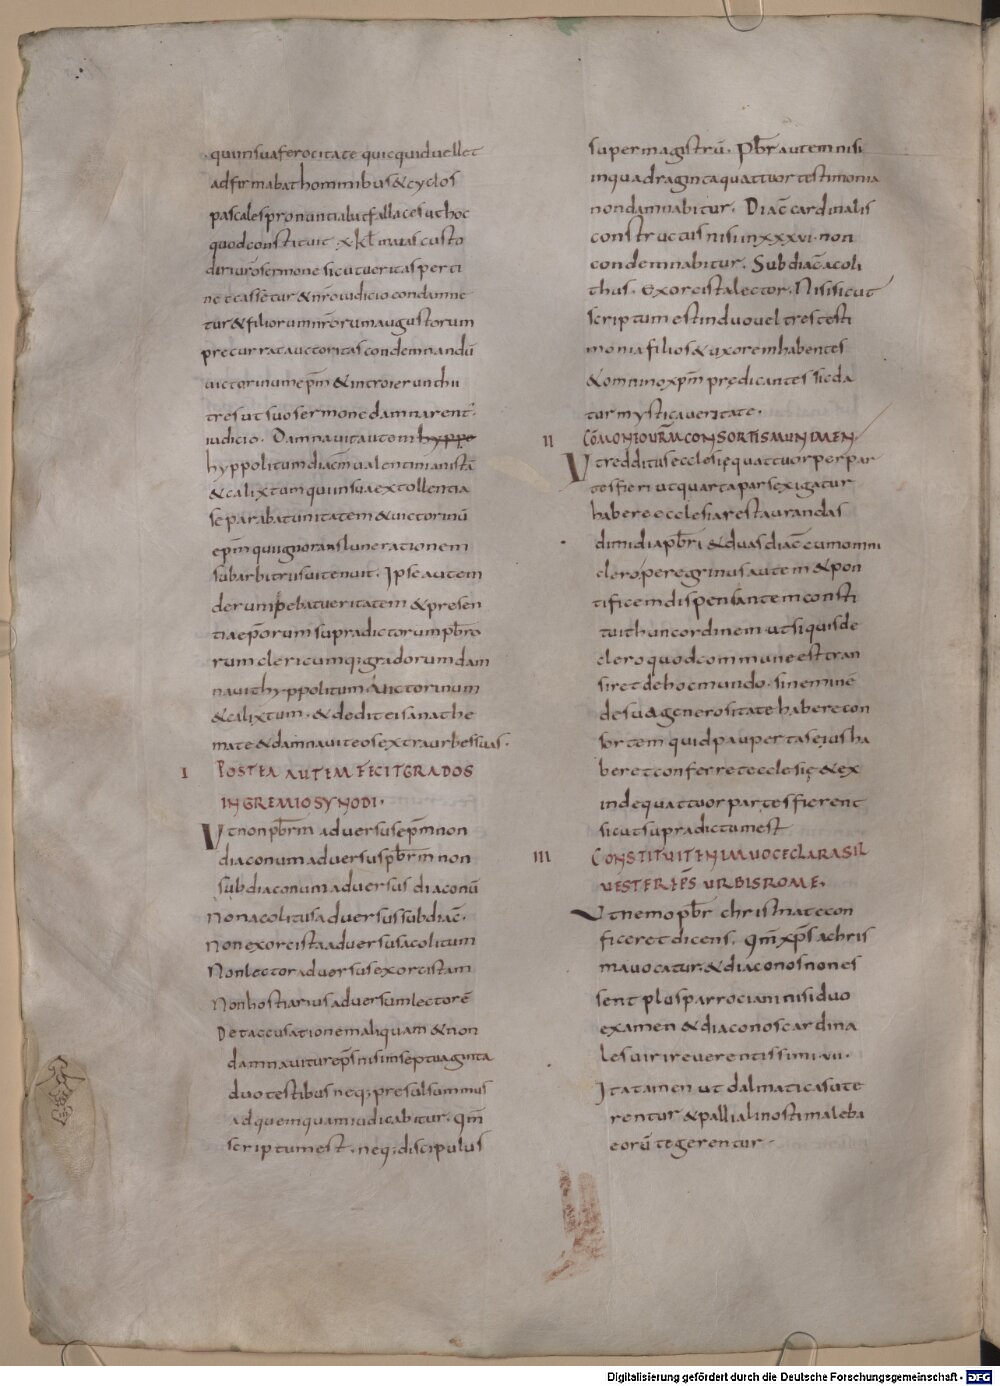 quiinsuaferocitate quicquiduellet
adfirmabathominibus&cyclos
pascalespronuntiabatfallacesuthoc
quodconstituit .x kƚ maias custo
diriurōsermone sicutueritasperti
netcassetur &nrōiudicio condamne
tur&filiorumnrōrumaugustorum
precurratauctoritascondemnandū
uictorinumep̄m &introierunthi
tresutsuosermonedamnarent
iudicio. Damnauitautem hyppo
hyppolitumdiac̄m ualentinianistā
&calixtum quiinsuaextollentia
separabatunitatem &uictorinū
ep̄m quiignoranslunerationem
subarbitriisuitenuit. Ipseautem
derumpebatueritatem &presen
tiaep̄orum supradictorum pb̄ro
rum clericumq; gradorumdam
nauithyppolitum &uictorinum
&calixtum. &dediteisanathe
mate &damnauiteosextraurbessuas.
I POSTEA AUTEM FECITGRADOS
INGREMIOSYNODI.
Utnonpb̄rm aduersusep̄mnon
diaconumaduersuspb̄rm non
subdiaconumaduersus diaconū
Nonacolitusaduersussubdiac̄.
Nonexorcistaaduersusacolitum
Nonlectoraduersusexorcistam
Nonhostiariusaduersumlectorē
Detaccusationemaliquam &non
damnauiturep̄snisiinseptuaginta
duotestibus neq; presulsummus
adquemquamiudicabitur. qm̄
scriptumest. neq; discipulus
supermagistrū. Pb̄r autemnisi
inquadragintaquattuortestimonia
nondamnabitur. Diac̄ cardinalis
constructusnisiinxxxvi. non
condemnabitur. Subdiac̄ acoli
thus. exorcistalector. Nisisicut
scriptumestinduoueltrestesti
moniafilios&uxoremhabentes
&omninoxp̄m prędicantes sicda
turmysticaueritate.
II COM̄ONEOUR̄M CONSORTISMUNIMEN.
Utredditusecclesięquattuorperpar
tesfieri utquartaparsexigatur
habereecclesiasrestaurandas
dimidiapb̄ri &duasdiac̄ cumomni
cleroperegrinusautem &pon
tificemdispensantemconsti
tuithuncordinem. utsiquisde
cleroquodcommuneesttran
siretdehocmundo. sineminē
desuageneros itatehaberecon
sortem quidpaupertaseiusha
beretconferretecclesię &ex
indequattuorpartesfierent
sicutsupradictumest
III CONSTITUITENIMUOCECLARASIL
UESTEREP̄S URBISROME.
Utnemopb̄r chrismatecon
ficeretdicens. qm̄ xp̄s achris
mauocatur. &diaconosnones
sent plusparrociamnisiduo
examen &diaconoscardina
lesuirireuerentissimi. vii.
Itatamen ut dalmaticasute
rentur &pallialinostimaleba
eorū tegerentur.
Digitalisierung gefördert durch die Deutsche Forschungsgemeinschaft - DFG